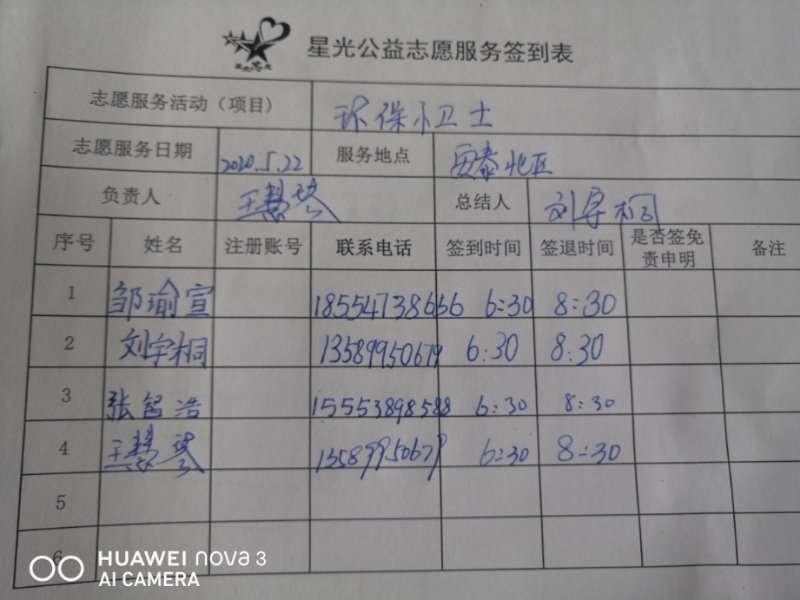 星光公益志愿服务签到表
志愿服务活动（项目） 环保小卫士
志愿服务日期 2020.5.22 服务地点 西泰北区
负责人 王慧琴 总结人 刘宇桐
序号 姓名 注册账号 联系电话 签到时间 签退时间 是否签免责申明 备注
1 邹瑜宣 18554738656 6:30 8:30
2 刘宇桐 13589950679 6:30 8:30
3 张智浩 15553898588 6:30 8:30
4 王慧琴 13589950679 6:30 8:30
5
6
HUAWEI nova 3
AI CAMERA